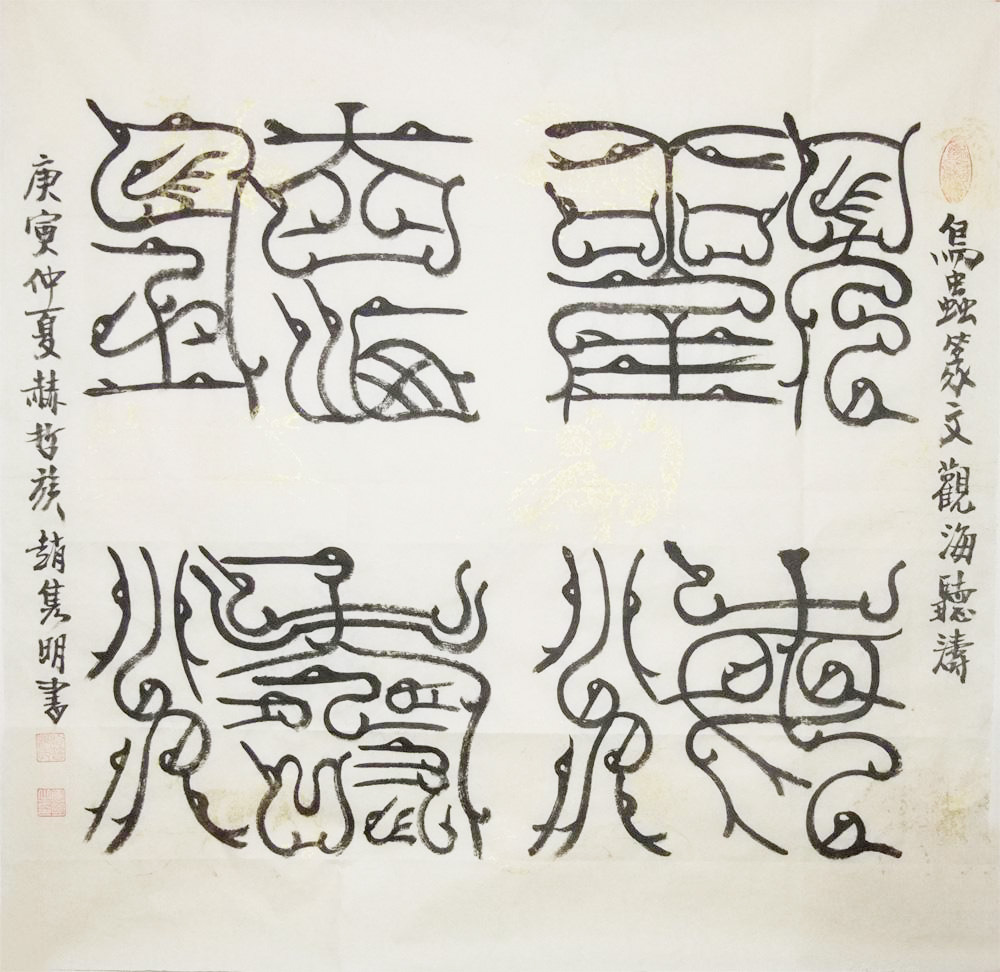 鳥蟲篆文觀海聽濤
觀海
聽濤
庚寅仲夏赫哲族趙雋明書